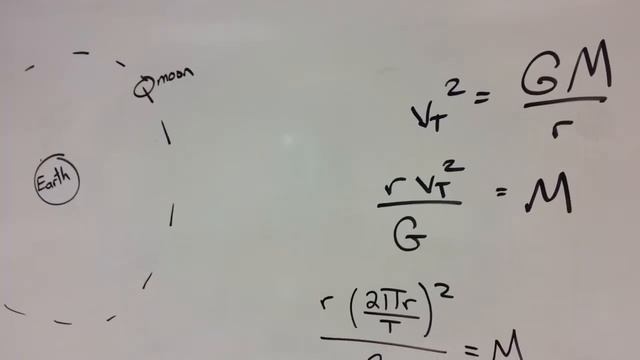 moon
Earth
v_T² = GM/r
r v_T²/G = M
r (2πr/T)²/G = M